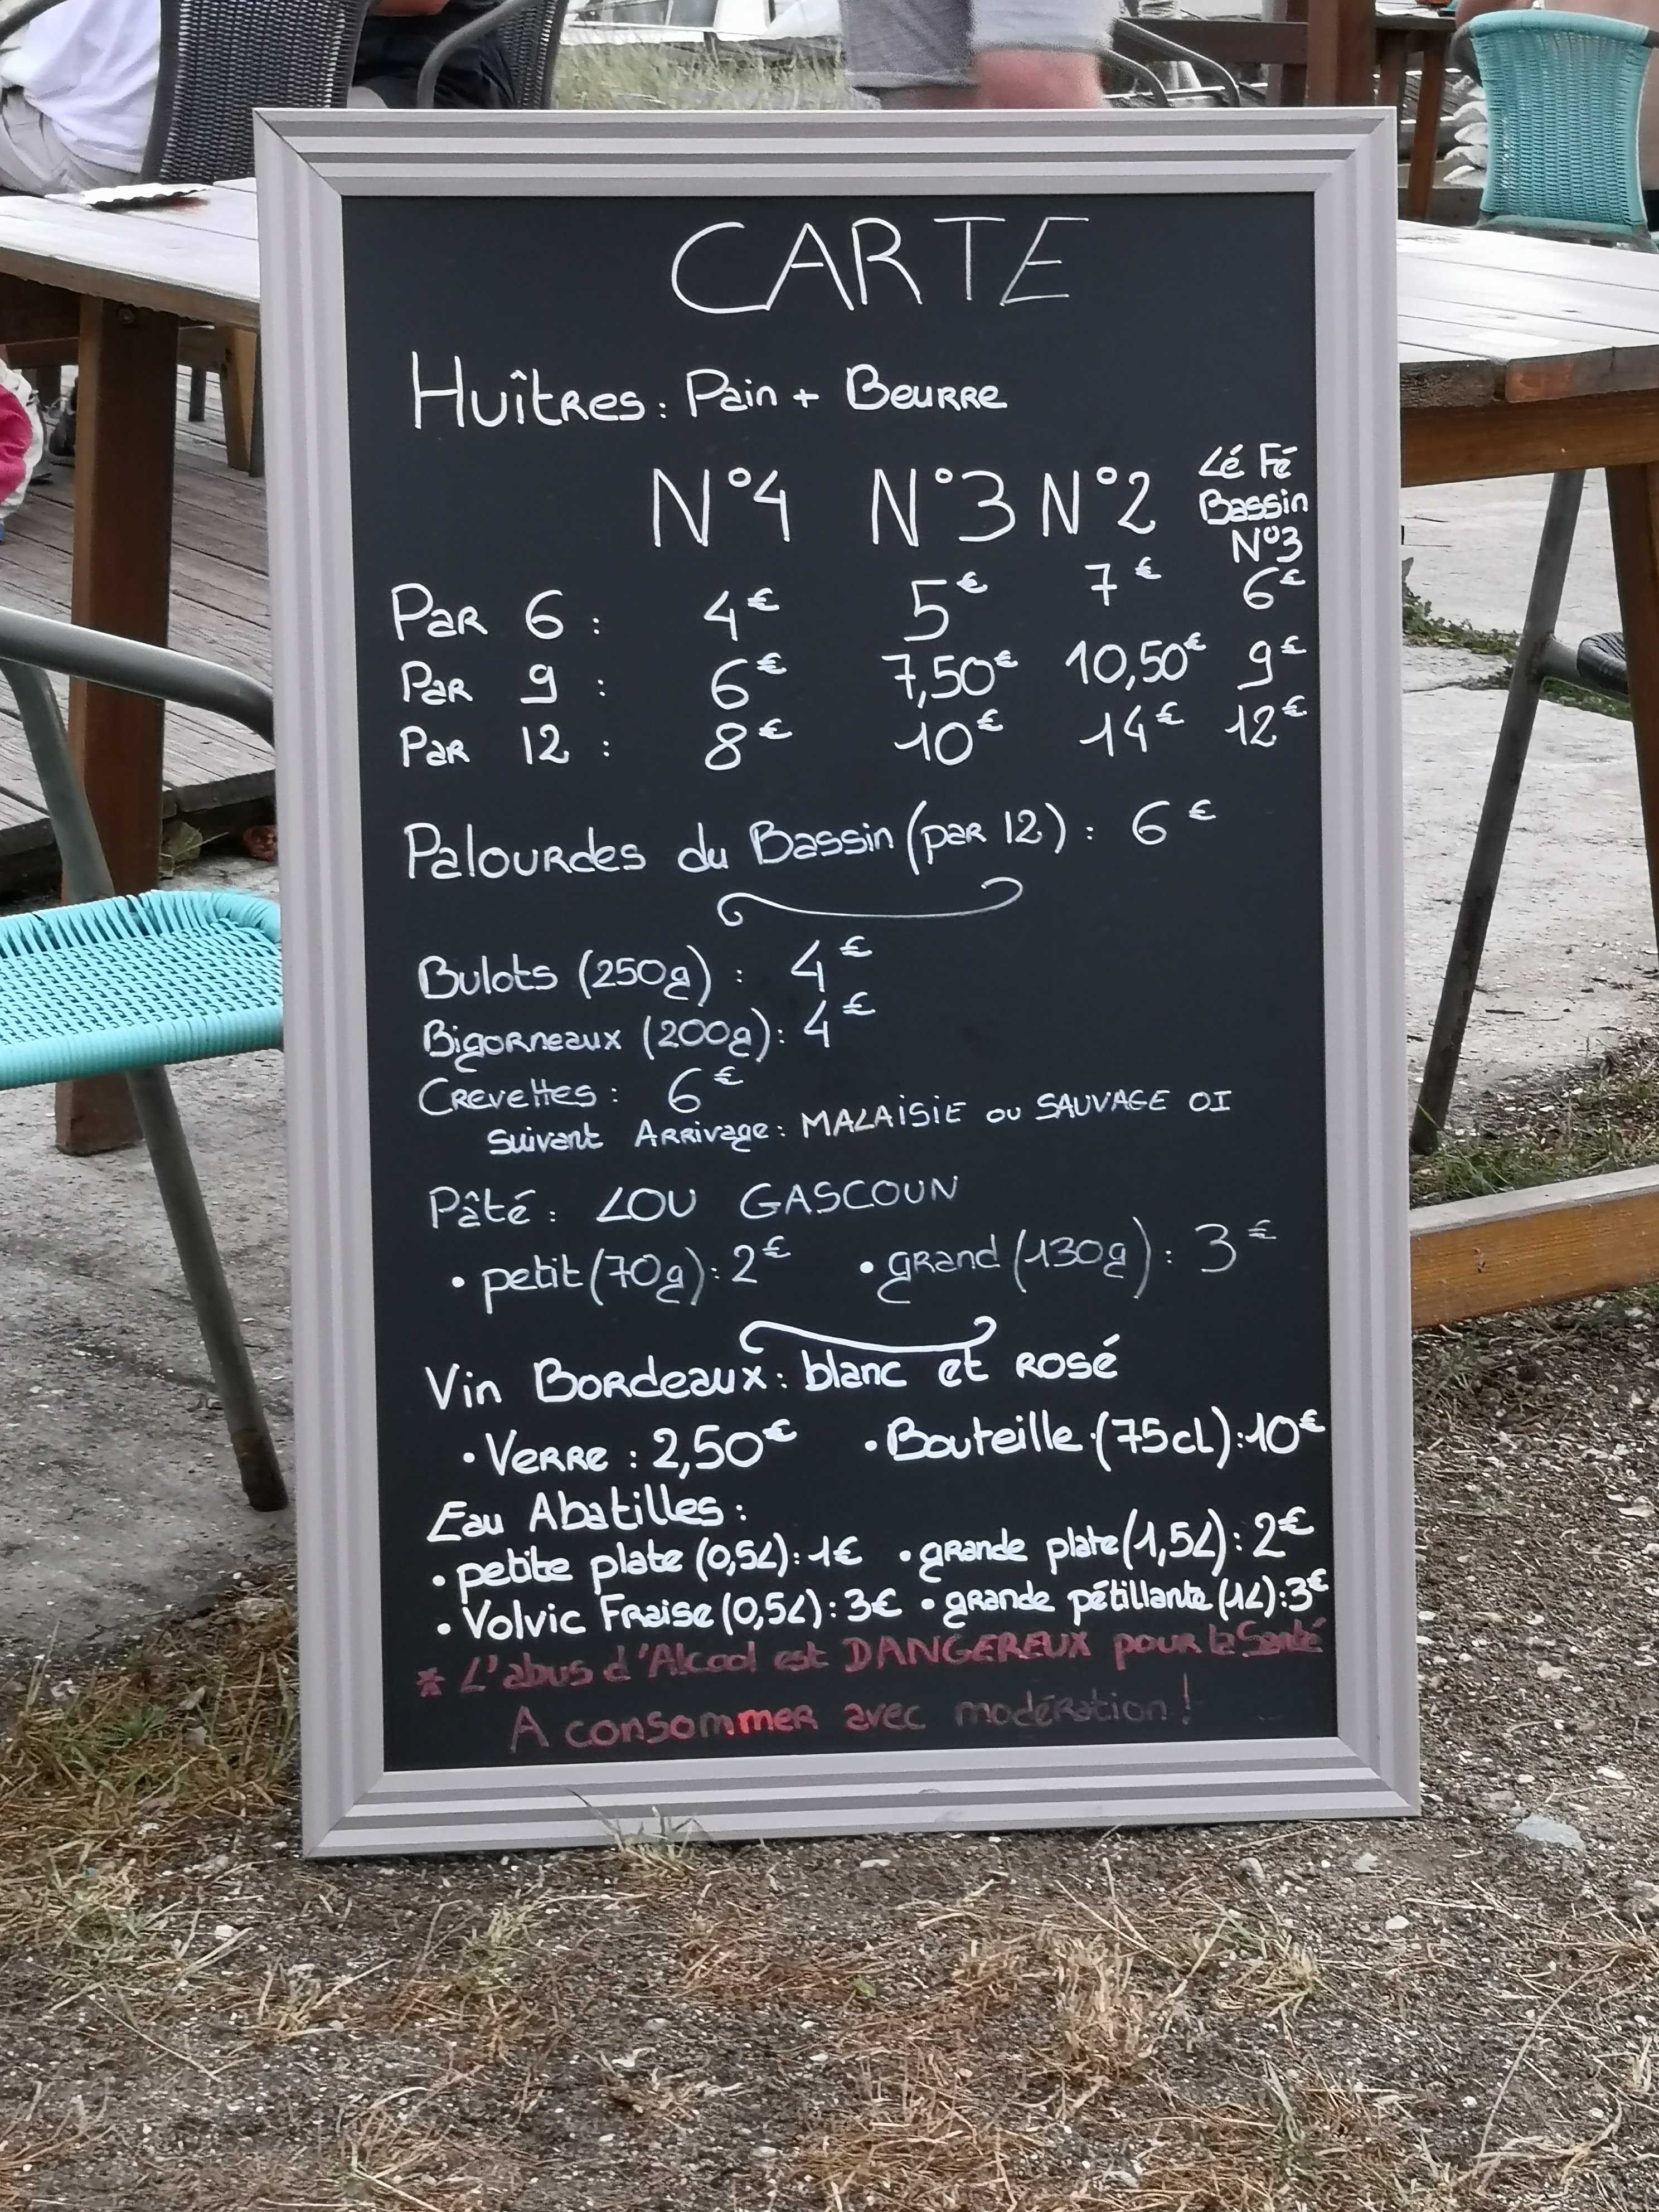 CARTE
Huîtres : Pain + Beurre
N°4 N°3 N°2 Lé Fé Bassin N°3
Par 6 : 4€ 5€ 7€ 6€
Par 9 : 6€ 7,50€ 10,50€ 9€
Par 12 : 8€ 10€ 14€ 12€
Palourdes du Bassin (par 12) : 6€
Bulots (250g) : 4€
Bigorneaux (200g) : 4€
Crevettes : 6€
suivant Arrivage : MALAISIE ou SAUVAGE OI
Pâté : LOU GASCOUN
• petit (70g) : 2€ • grand (130g) : 3€
Vin Bordeaux : blanc et rosé
• Verre : 2,50€ • Bouteille (75cL) : 10€
Eau Abatilles :
• petite plate (0,5L) : 1€ • grande plate (1,5L) : 2€
• Volvic Fraise (0,5L) : 3€ • grande pétillante (1L) : 3€
* L'abus d'Alcool est DANGEREUX pour la Santé
A consommer avec modération !